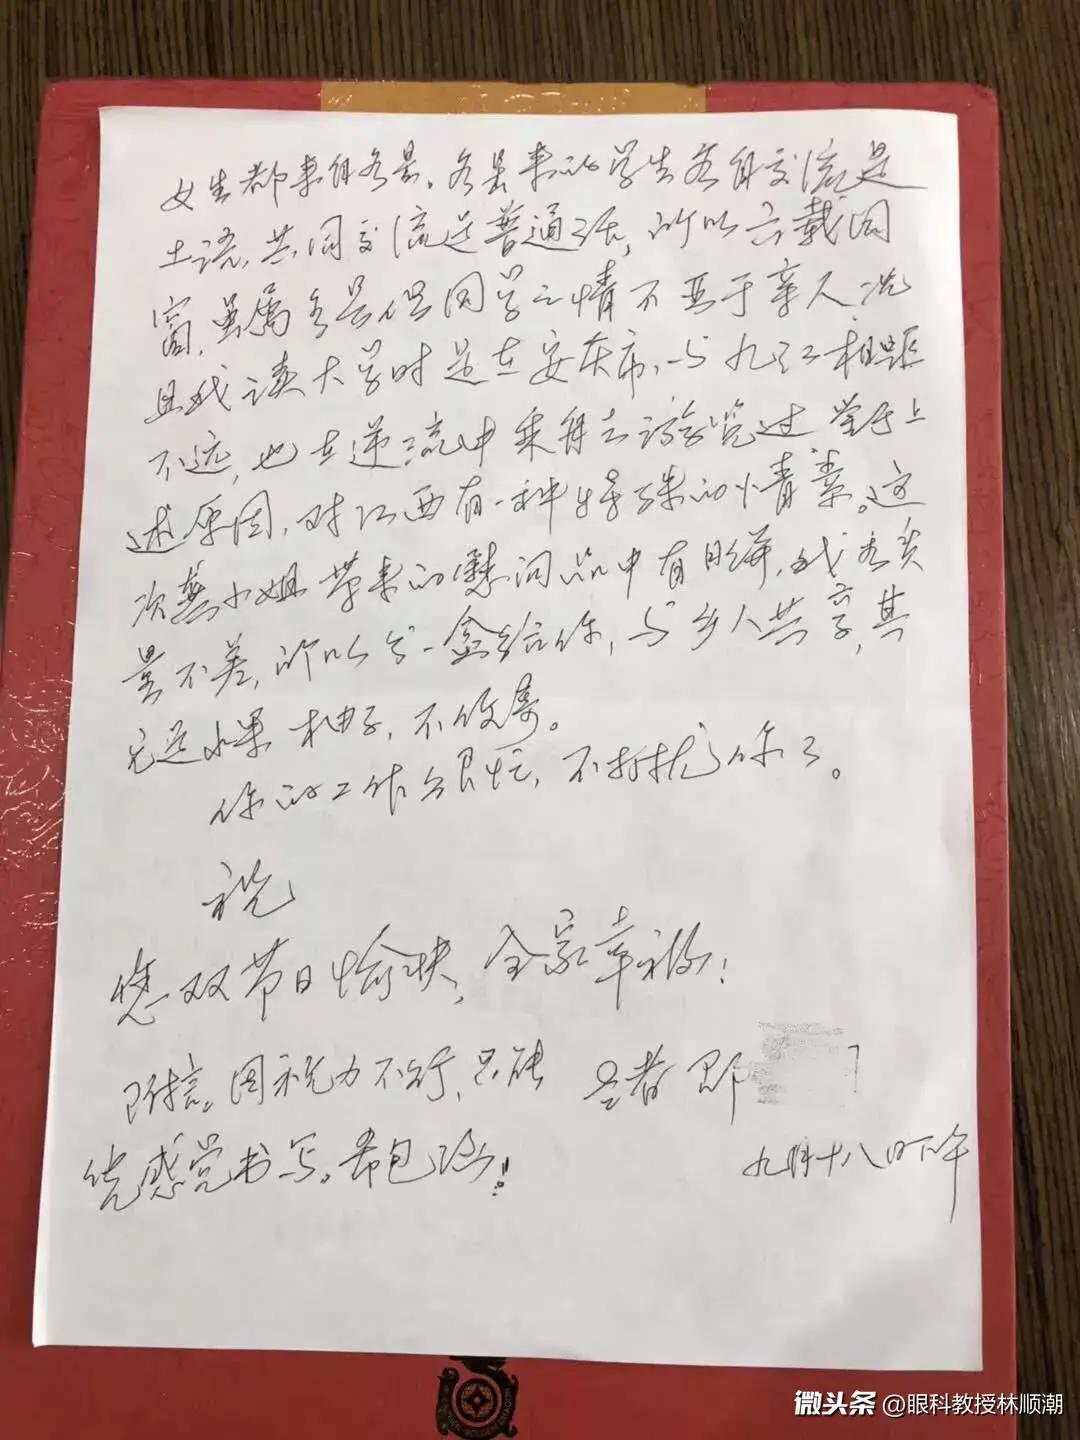 女生都来自各县。各县来的学生各自交流是
土语,共同交流是普通话,所以六载同
窗,虽属各县但同学之情不亚于亲人,况
且我读大学时是在安庆市,与九江相距
不远,也在逆流中乘舟去游览过。鉴于上
述原因,对江西有一种特殊的情素。这
次龚小姐带来的慰问品中有月饼,我看质
量不差,所以分一盒给你,与乡人共享,其
它是水果柚子,不便寄。
你的工作会很忙,不打扰你了。
祝
您双节日愉快,全家幸福!
附言。因视力不行,只能
凭感觉书写。希包涵!
患者 郑
九月十八日下午
微头条 @眼科教授林顺潮